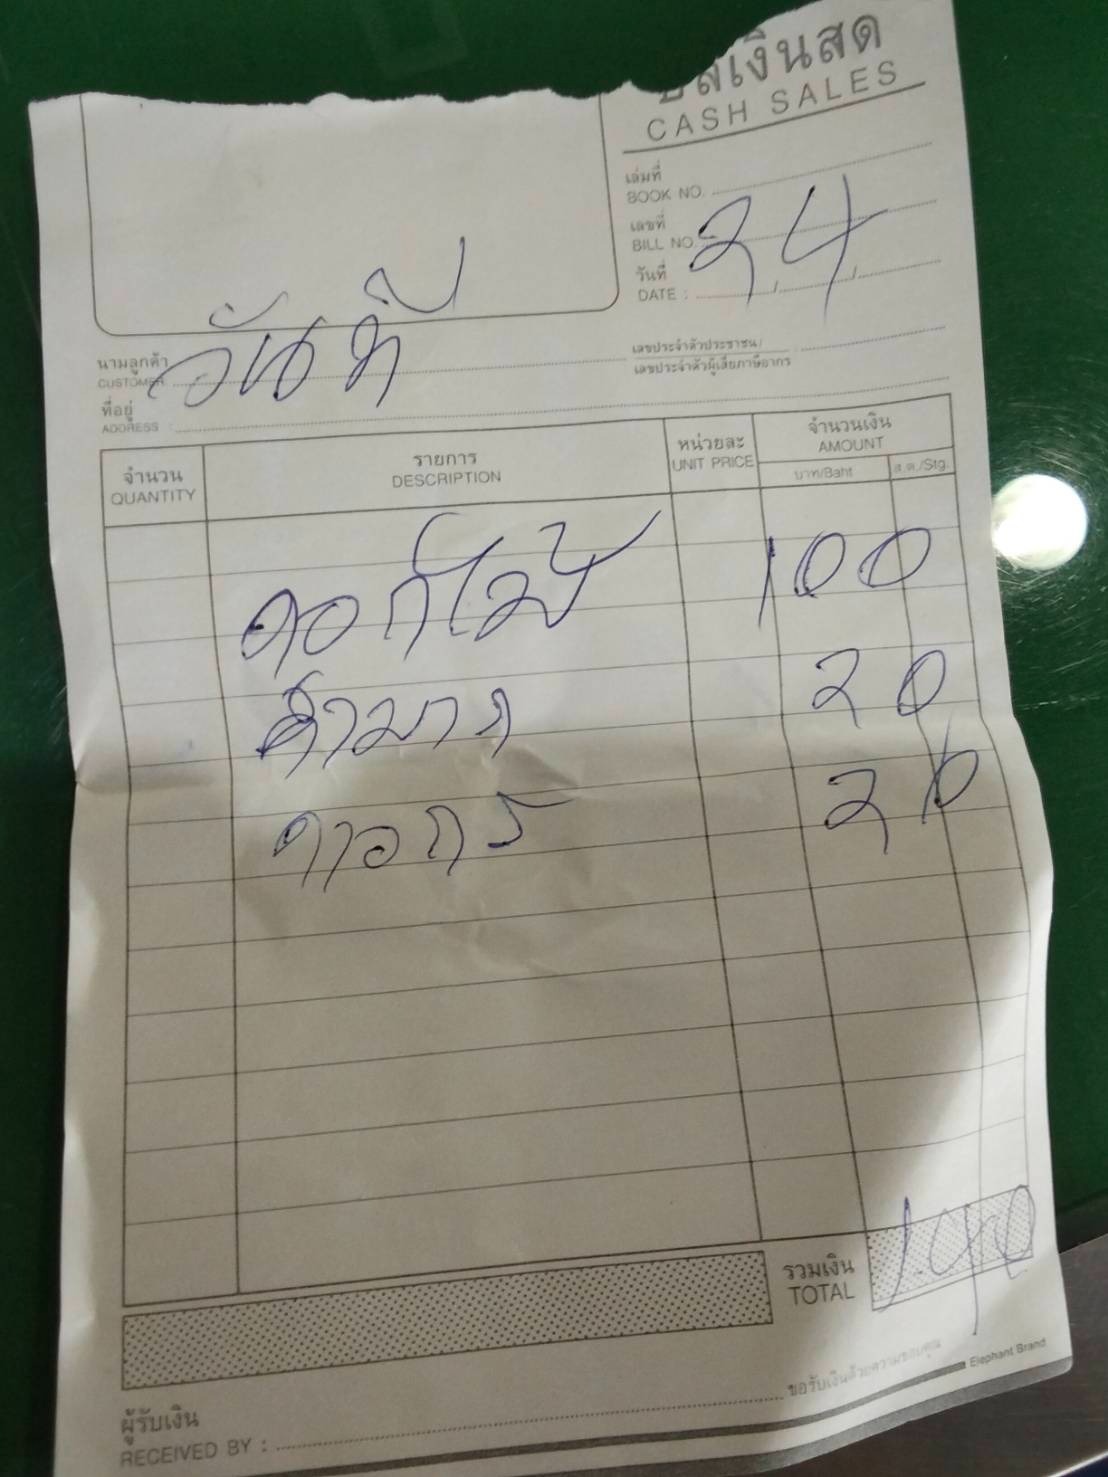 บิลเงินสด
CASH SALES
เล่มที่
BOOK NO.
เลขที่
BILL NO.
วันที่
DATE : / /
วันที่ 24
นามลูกค้า
CUSTOMER
เลขประจำตัวประชาชน/
เลขประจำตัวผู้เสียภาษีอากร
ที่อยู่
ADDRESS :
จำนวน
QUANTITY
รายการ
DESCRIPTION
หน่วยละ
UNIT PRICE
จำนวนเงิน
AMOUNT
บาท/Baht
ส.ต./Stg.
ดอกไม้ 100
20
20
รวมเงิน
TOTAL
140
ขอรับเงินด้วยความขอบคุณ
Elephant Brand
ผู้รับเงิน
RECEIVED BY :